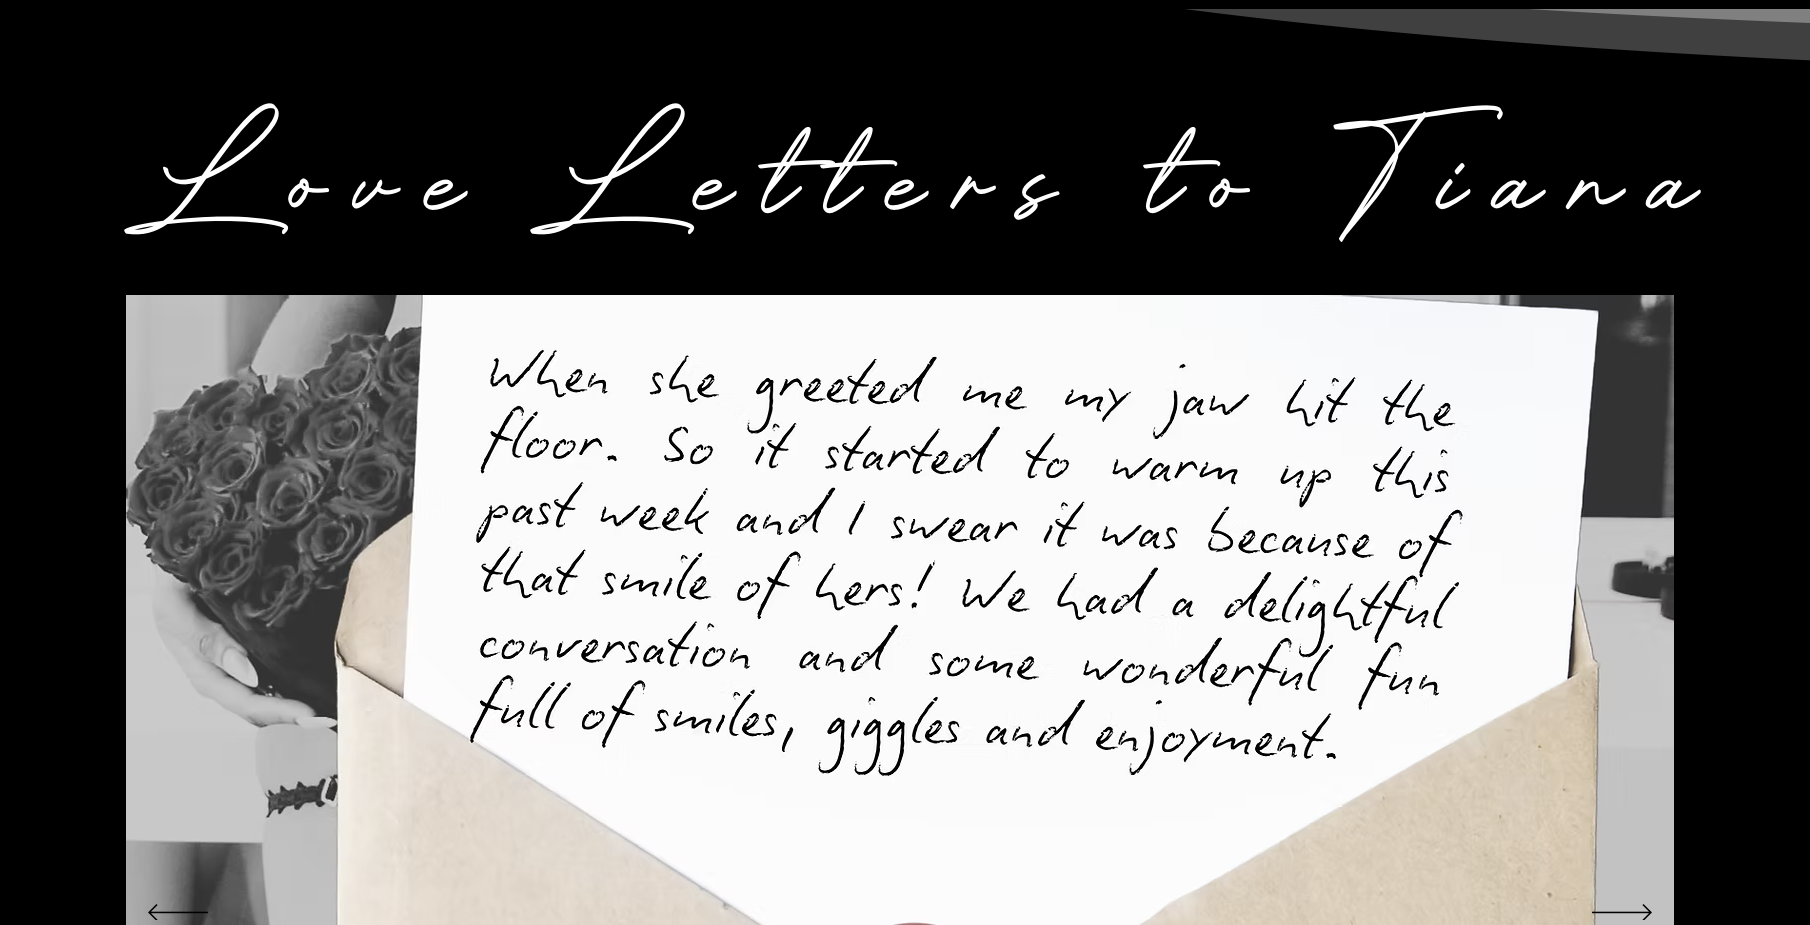 Love Letters to Tiana
When she greeted me my jaw hit the
floor. So it started to warm up this
past week and I swear it was because of
that smile of hers! We had a delightful
conversation and some wonderful fun
full of smiles, giggles and enjoyment.